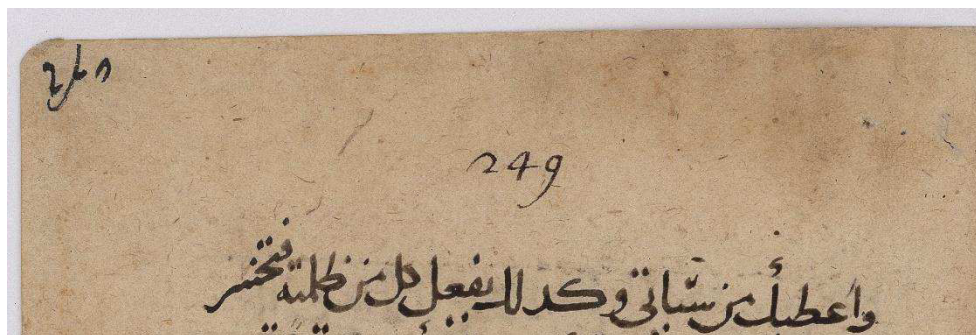 249
وأعطيك من سيّاتي وكدلك يفعل كل من ظلمته فتخسر